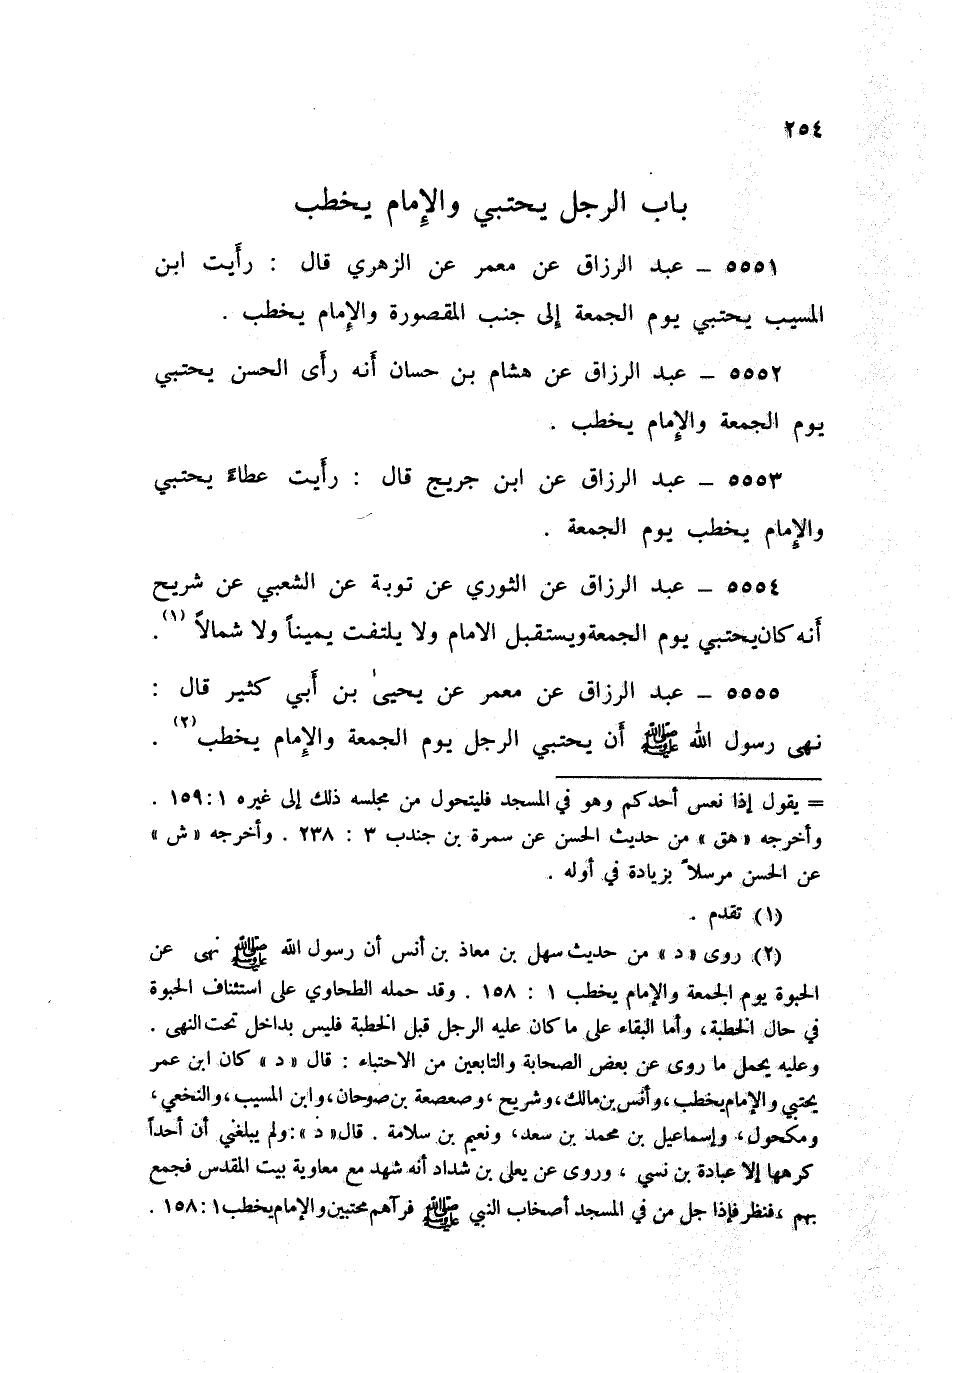 ٢٥٤
باب الرجل يحتبي والإمام يخطب
٥٥٥١ ــ عبد الرزاق عن معمر عن الزهري قال : رأيت ابن
المسيب يحتبي يوم الجمعة إلى جنب المقصورة والإمام يخطب .
٥٥٥٢ ــ عبد الرزاق عن هشام بن حسان أنه رأى الحسن يحتبي
يوم الجمعة والإمام يخطب .
٥٥٥٣ ــ عبد الرزاق عن ابن جريج قال : رأيت عطاءً يحتبي
والإمام يخطب يوم الجمعة .
٥٥٥٤ ــ عبد الرزاق عن الثوري عن توبة عن الشعبي عن شريح
أنه كان يحتبي يوم الجمعة ويستقبل الامام ولا يلتفت يميناً ولا شمالاً (١) .
٥٥٥٥ ــ عبد الرزاق عن معمر عن يحيىٰ بن أبي كثير قال :
نهى رسول الله ﷺ أن يحتبي الرجل يوم الجمعة والإمام يخطب (٢) .
= يقول إذا نعس أحدكم وهو في المسجد فليتحول من مجلسه ذلك إلى غيره ١:١٥٩ .
وأخرجه «هق» من حديث الحسن عن سمرة بن جندب ٣ : ٢٣٨ . وأخرجه «ش»
عن الحسن مرسلاً بزيادة في أوله .
(١) تقدم .
(٢) روى «د» من حديث سهل بن معاذ بن أنس أن رسول الله ﷺ نهى عن
الحبوة يوم الجمعة والإمام يخطب ١ : ١٥٨ . وقد حمله الطحاوي على استئناف الحبوة
في حال الخطبة، وأما البقاء على ما كان عليه الرجل قبل الخطبة فليس بداخل تحت النهى .
وعليه يحمل ما روى عن بعض الصحابة والتابعين من الاحتباء : قال «د» كان ابن عمر
يحتبي والإمام يخطب، وأنس بن مالك، وشريح، وصعصعة بن صوحان، وابن المسيب، والنخعي،
ومكحول، وإسماعيل بن محمد بن سعد، ونعيم بن سلامة . قال «د»: ولم يبلغني أن أحداً
كرهها إلا عبادة بن نسي ، وروى عن يعلى بن شداد أنه شهد مع معاوية بيت المقدس فجمع
بهم ، فنظر فإذا جل من في المسجد أصحاب النبي ﷺ فرآهم محتبين والإمام يخطب ١:١٥٨ .